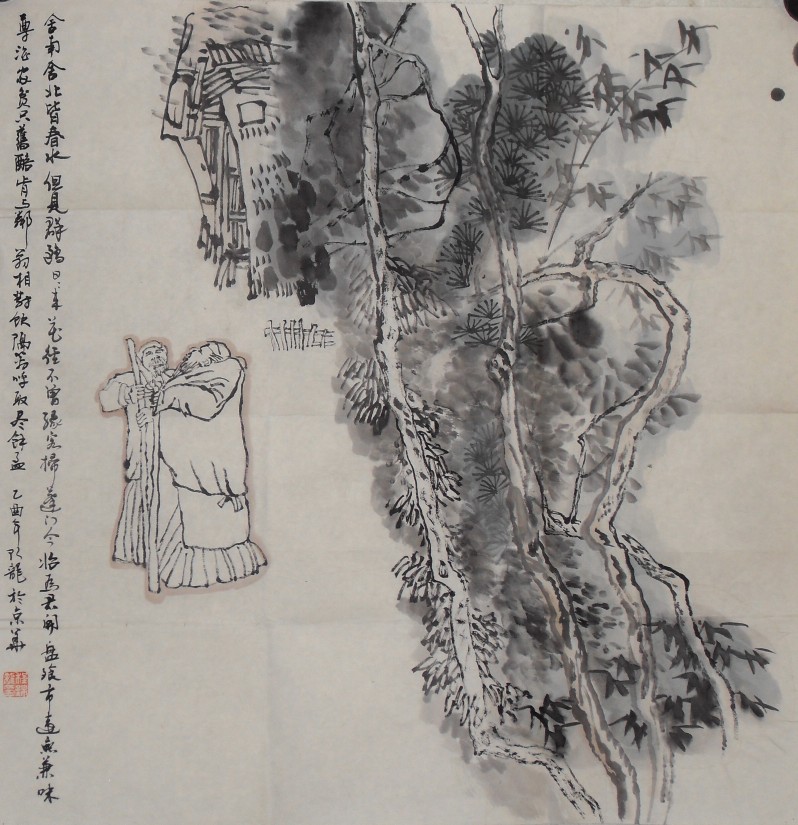 舍南舍北皆春水但見群鷗日〻来花徑不曾緣客掃蓬门今始為君開盘飧市遠無兼味
尊酒家貧只舊醅肯与鄰翁相對飲隔篱呼取尽餘盃 乙酉年 龍於京華